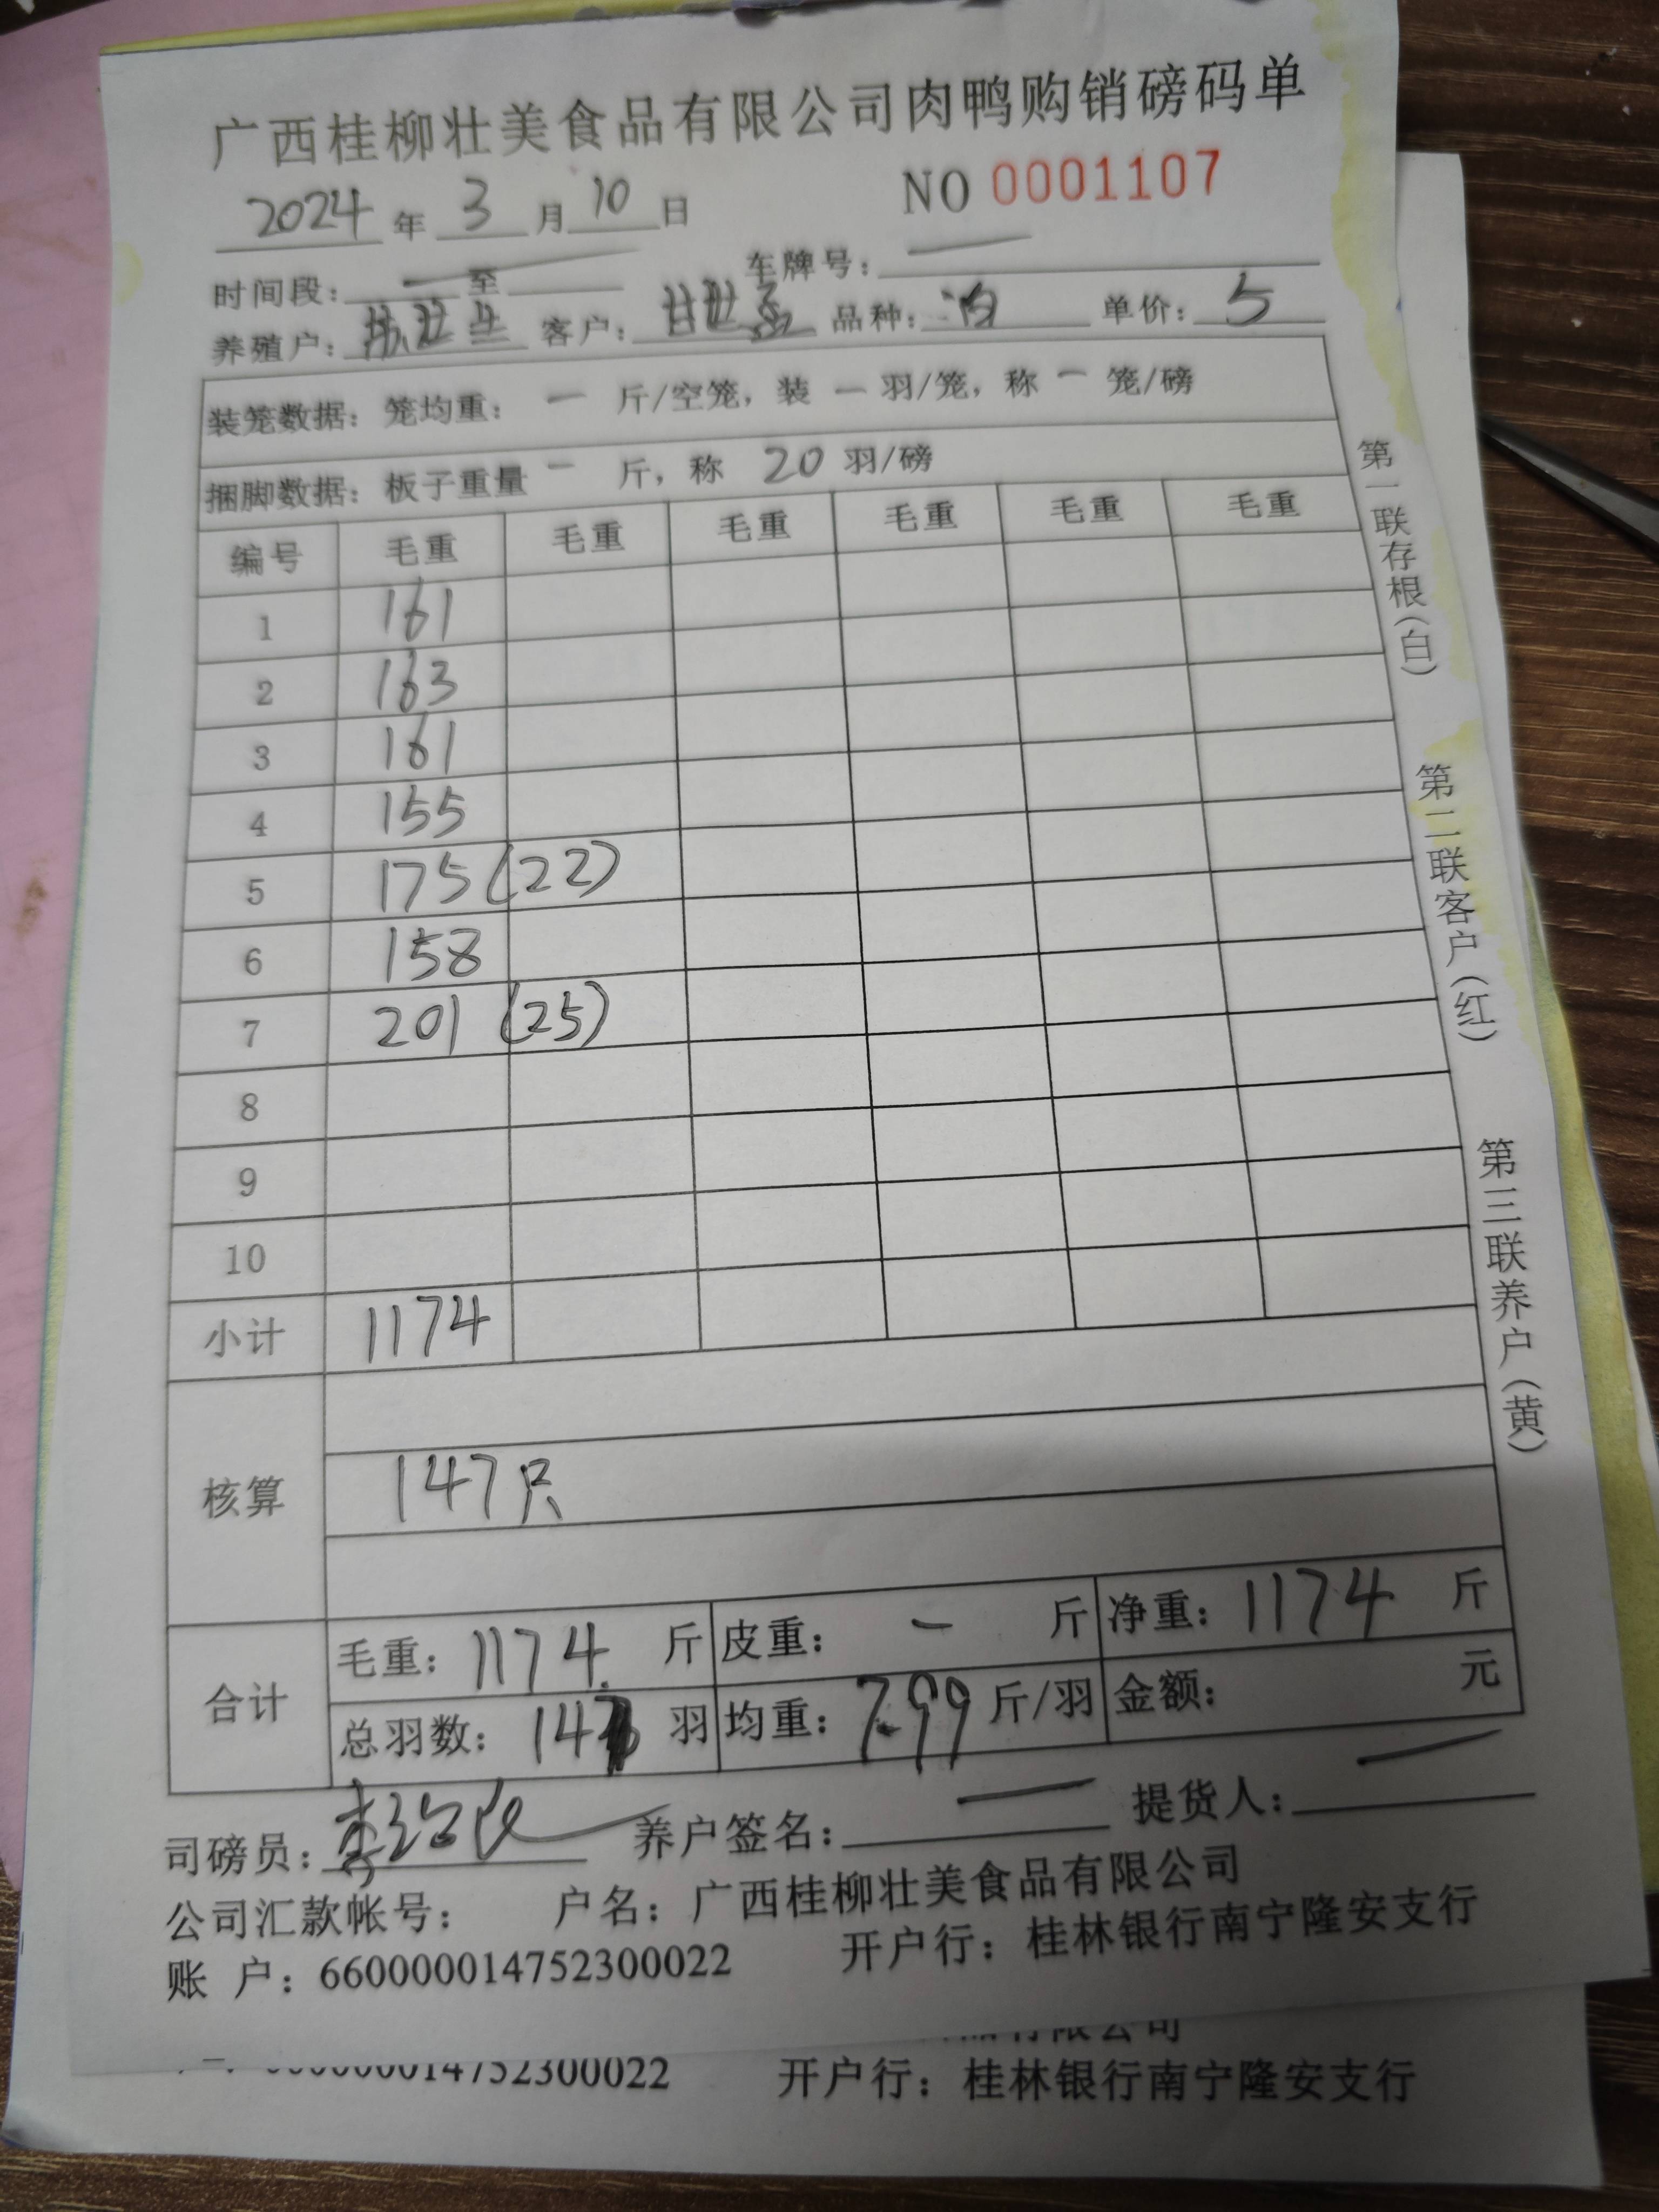 广西桂柳壮美食品有限公司肉鸭购销磅码单
2024 年 3 月 10 日 NO 0001107
时间段: 一 至 车牌号: 一
养殖户: 客户: 品种: 单价: 5
装笼数据: 笼均重: 一 斤/空笼, 装 一 羽/笼, 称 一 笼/磅
捆脚数据: 板子重量 一 斤, 称 20 羽/磅
编号 毛重 毛重 毛重 毛重 毛重 毛重
1 161
2 163
3 161
4 155
5 175 (22)
6 158
7 201 (25)
8
9
10
小计 1174
核算 147只
合计 毛重: 1174 斤 皮重: 一 斤 净重: 1174 斤
总羽数: 147 羽 均重: 7.99 斤/羽 金额: 元
司磅员: 养户签名: 一 提货人: 一
公司汇款帐号: 户名: 广西桂柳壮美食品有限公司
账 户: 660000014752300022 开户行: 桂林银行南宁隆安支行
第一联存根(白) 第二联客户(红) 第三联养户(黄)
14752300022 开户行: 桂林银行南宁隆安支行